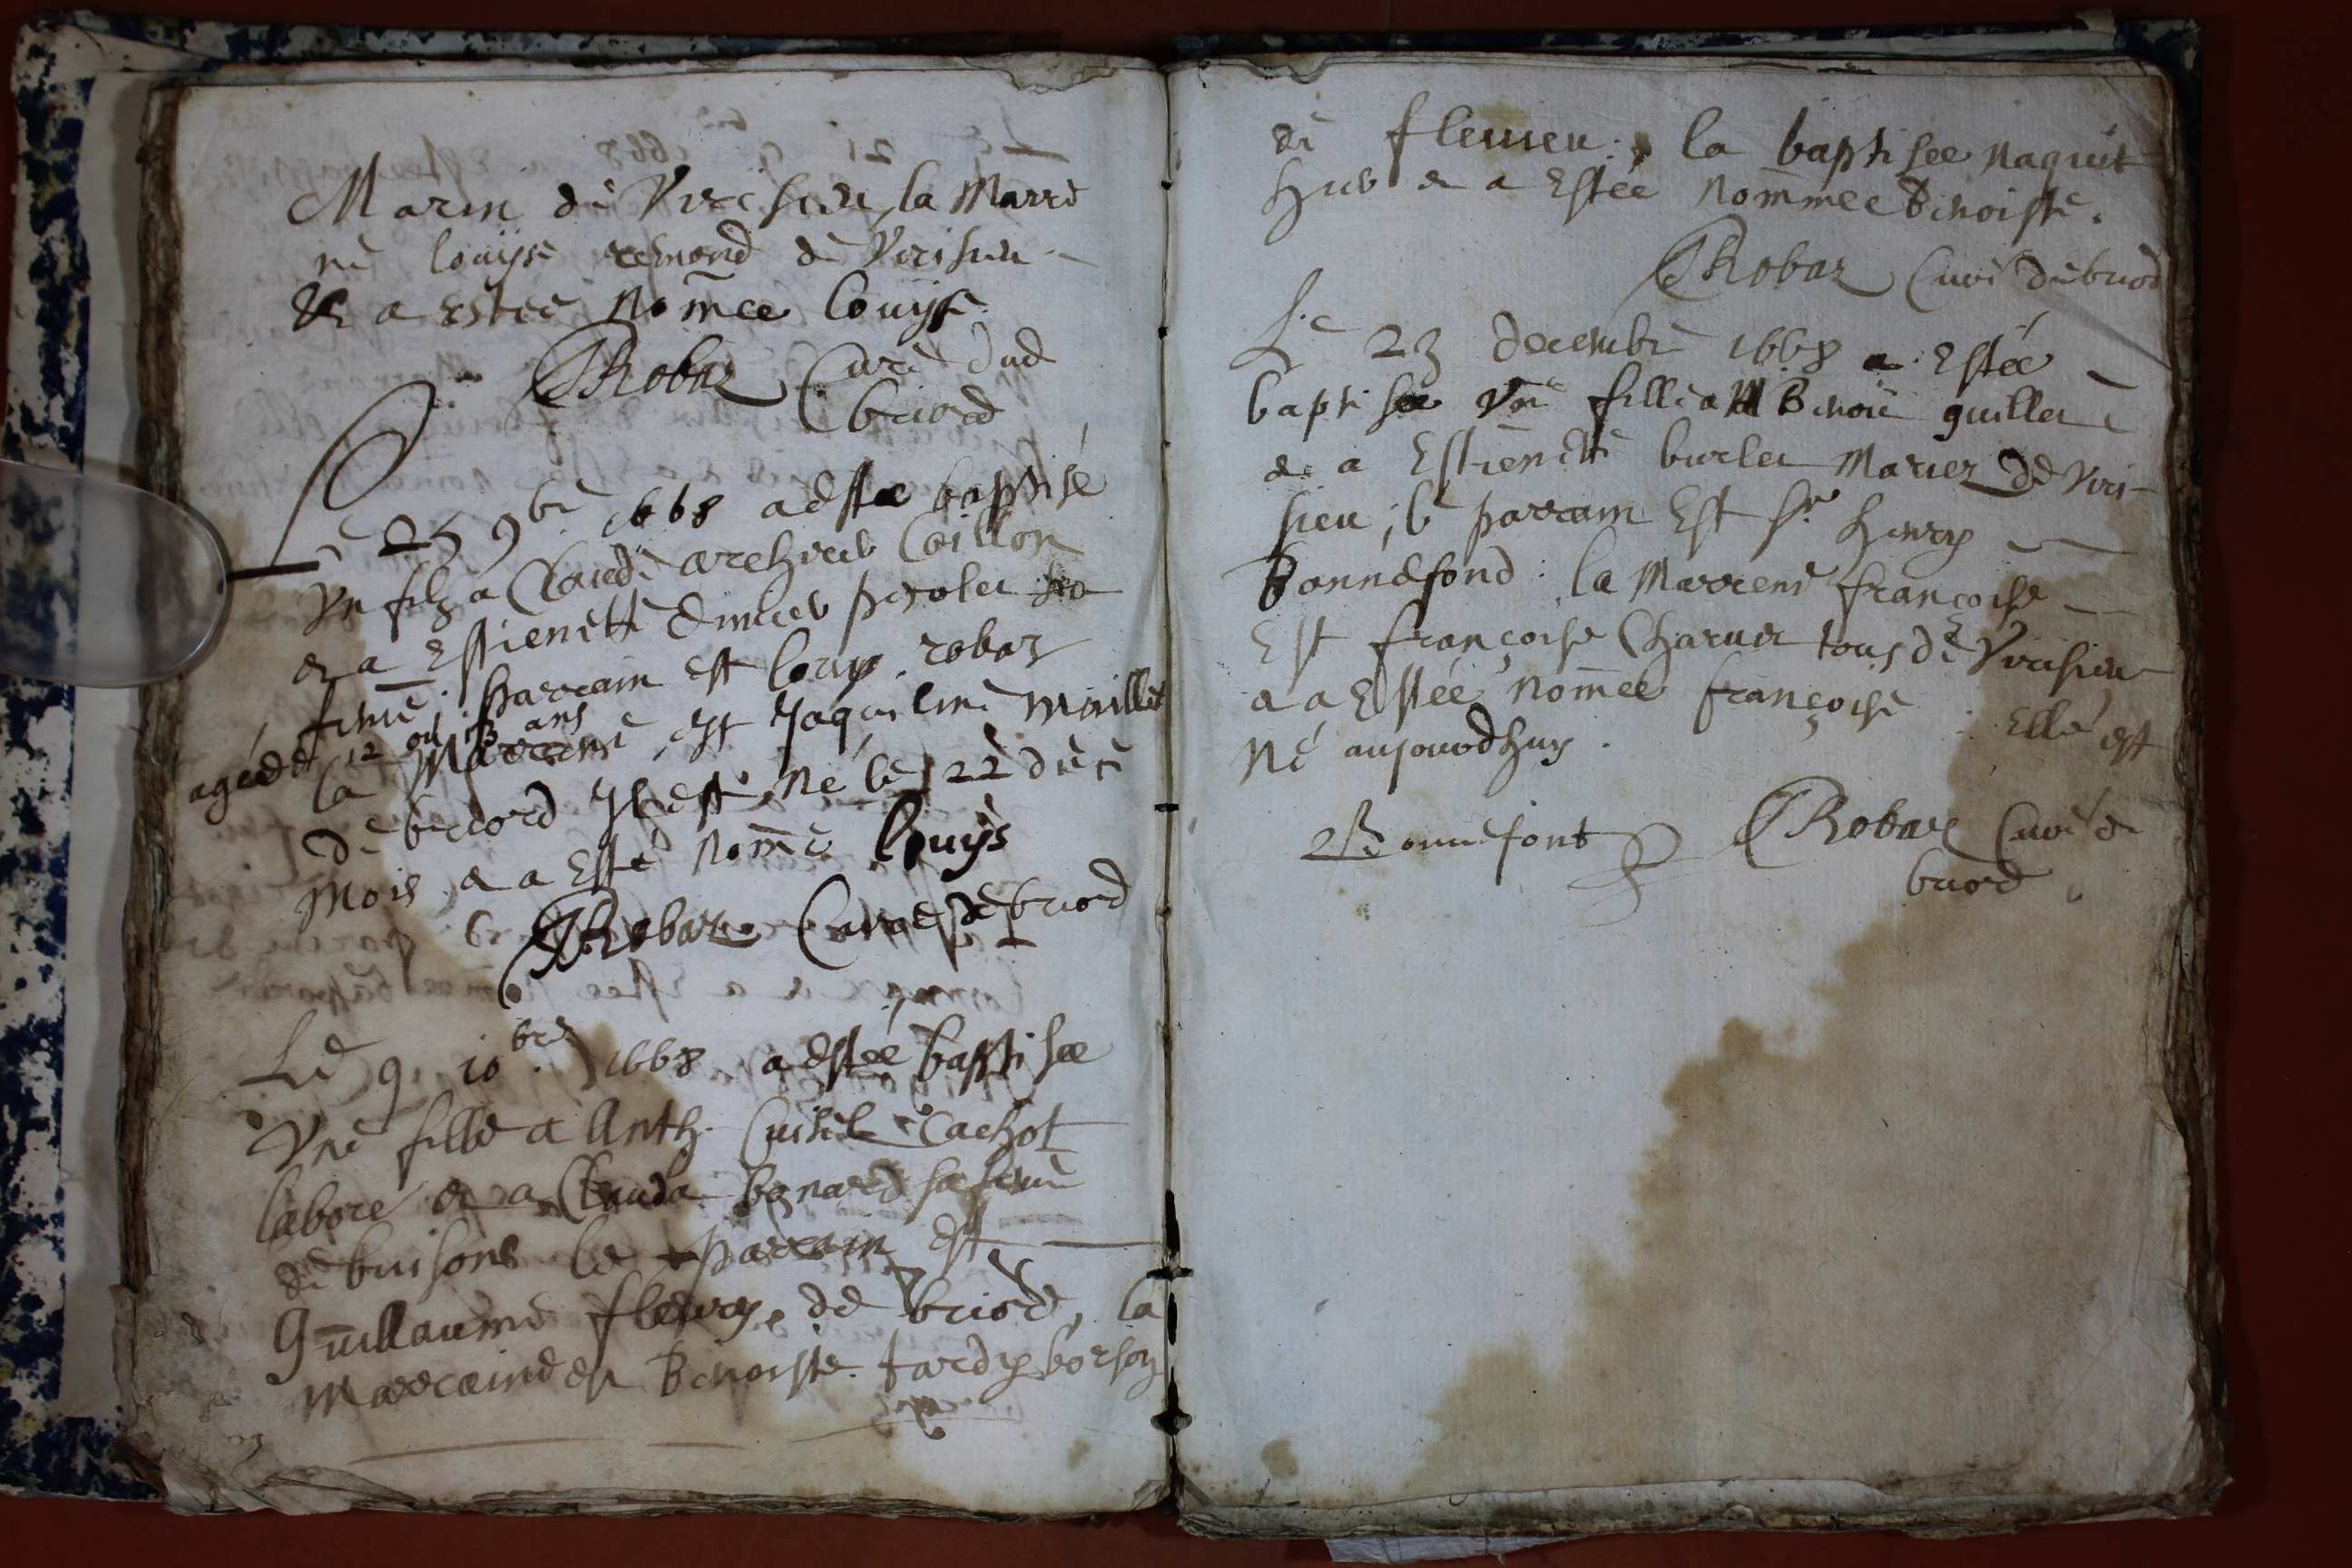 Marin de Virisieu la Marrè
ne louijse remond de Virisieu
& a estee nom̃ee louijse
Robaz Curé dud
briord
Le 25 9bre 1668 a este baptisé
Vn filz a Claude archivel Coillon
& a Estienette
femme. parrain est louys robaz
agé de 12 ou 13 ans
la Marrene est Jaqueline Maillet
de briord Il est né le 22 de ce
Mois & a Esté nom̃é louijs
Robaz Curé de briord
Le 9 10bre 1668 a estée baptisee
Vne fille a Anth. Cachot
laborè & a Clauda bonard sa feme
de buisons le parrain est
Guillaume fleury de briord, la
Marraine est Benoiste tardy borson
de fleurieu. la baptisee naquit
hier & a Estée nom̃mee Benoiste.
Robaz Curé de briord
Le 23 decembre 1668 a Estée
baptisee Vne fille a M Benoit guillet
& a Estienette burlet Mariez de Viri-
sieu ; le parrain Est Sr henry
Bonnefond : la Marrene françoise
Est françoise Charvet tous de Virisieu
& a Estée nom̃ee françoise . Elle est
né aujourdhuy .
Bonnefont Robaz Curé de
briord